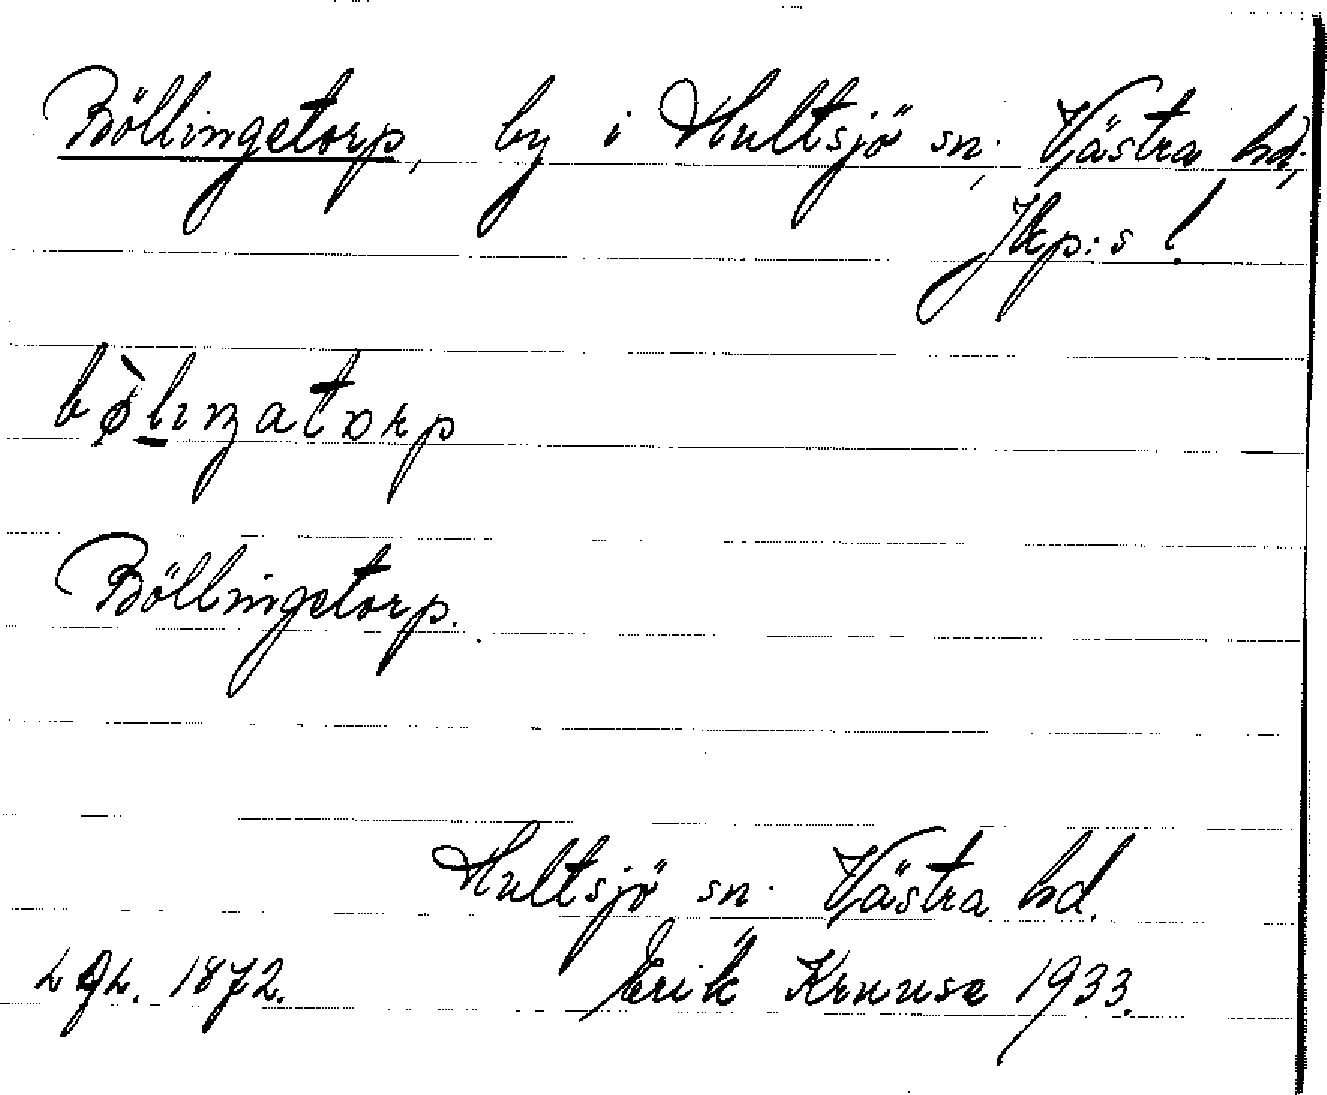 Böllingetorp, by i Hultsjö sn; Västra hd;
Jkp:s l.
bø̀lıŋatorp
Böllingetorp.
Hultsjö sn. Västra hd.
1872. Erik Krause 1933.